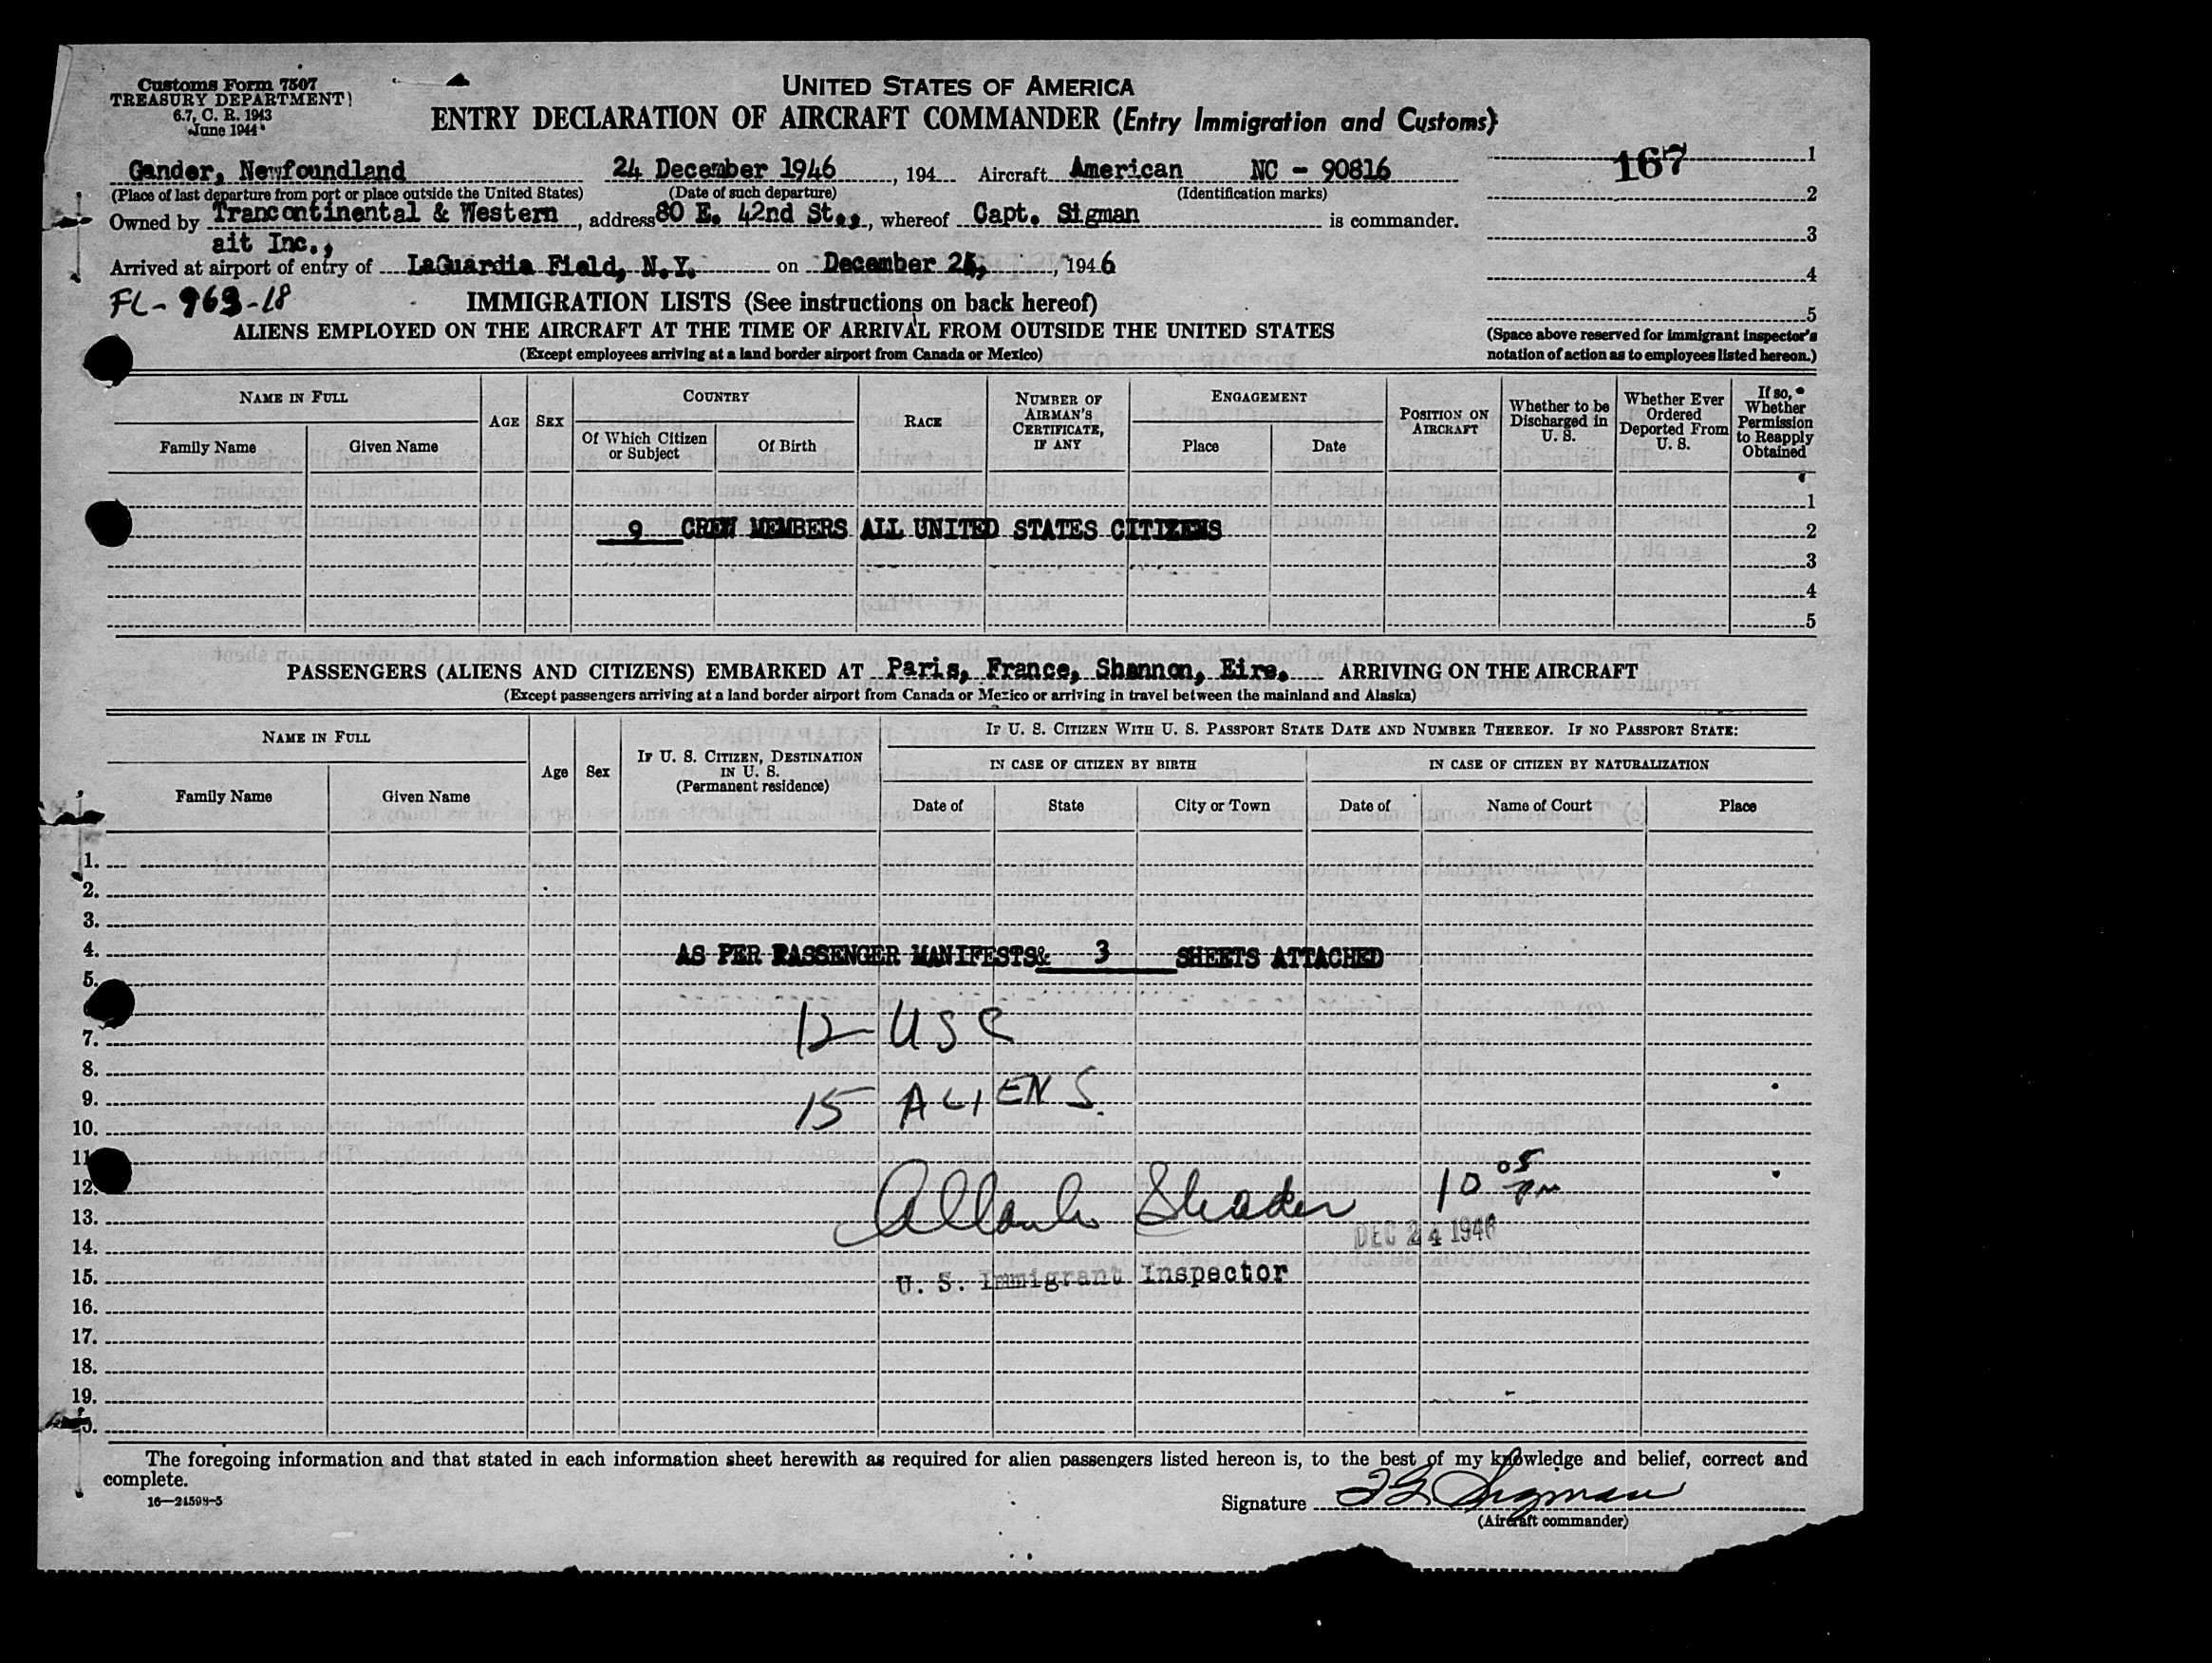 Customs Form 7507
TREASURY DEPARTMENT
6.7, C. R. 1943
June 1944
UNITED STATES OF AMERICA
ENTRY DECLARATION OF AIRCRAFT COMMANDER (Entry Immigration and Customs)
167
Gander, Newfoundland 24 December 1946, 194 Aircraft American NC - 90816
(Place of last departure from port or place outside the United States) (Date of such departure) (Identification marks)
Owned by Trancontinental & Western, address 80 E. 42nd St., whereof Capt. Sigman is commander.
ait Inc.,
Arrived at airport of entry of LaGuardia Field, N.Y. on December 24, 1946
1
2
3
4
5
(Space above reserved for immigrant inspector's
notation of action as to employees listed hereon.)
FL-963-18
IMMIGRATION LISTS (See instructions on back hereof)
ALIENS EMPLOYED ON THE AIRCRAFT AT THE TIME OF ARRIVAL FROM OUTSIDE THE UNITED STATES
(Except employees arriving at a land border airport from Canada or Mexico)
NAME IN FULL
Family Name Given Name
AGE SEX
COUNTRY
Of Which Citizen or Subject Of Birth
RACE
NUMBER OF AIRMAN'S CERTIFICATE, IF ANY
ENGAGEMENT
Place Date
POSITION ON AIRCRAFT
Whether to be Discharged in U. S.
Whether Ever Ordered Deported From U. S.
If so, Whether Permission to Reapply Obtained
1
9 CREW MEMBERS ALL UNITED STATES CITIZENS 2
3
4
5
PASSENGERS (ALIENS AND CITIZENS) EMBARKED AT Paris, France, Shannon, Eire. ARRIVING ON THE AIRCRAFT
(Except passengers arriving at a land border airport from Canada or Mexico or arriving in travel between the mainland and Alaska)
NAME IN FULL
Family Name Given Name
Age Sex
IF U. S. CITIZEN, DESTINATION IN U. S.
(Permanent residence)
IF U. S. CITIZEN WITH U. S. PASSPORT STATE DATE AND NUMBER THEREOF. IF NO PASSPORT STATE:
IN CASE OF CITIZEN BY BIRTH IN CASE OF CITIZEN BY NATURALIZATION
Date of State City or Town Date of Name of Court Place
1.
2.
3.
4. AS PER PASSENGER MANIFESTS& 3 SHEETS ATTACHED
5.
12 USC
7.
8.
9. 15 ALIENS.
10.
11
12. 10 05 PM
13. Shader
14. DEC 24 1946
15. U. S. Immigrant Inspector
16.
17.
18.
19.
The foregoing information and that stated in each information sheet herewith as required for alien passengers listed hereon is, to the best of my knowledge and belief, correct and
complete.
16—21598-5
Signature Sigman
(Aircraft commander)